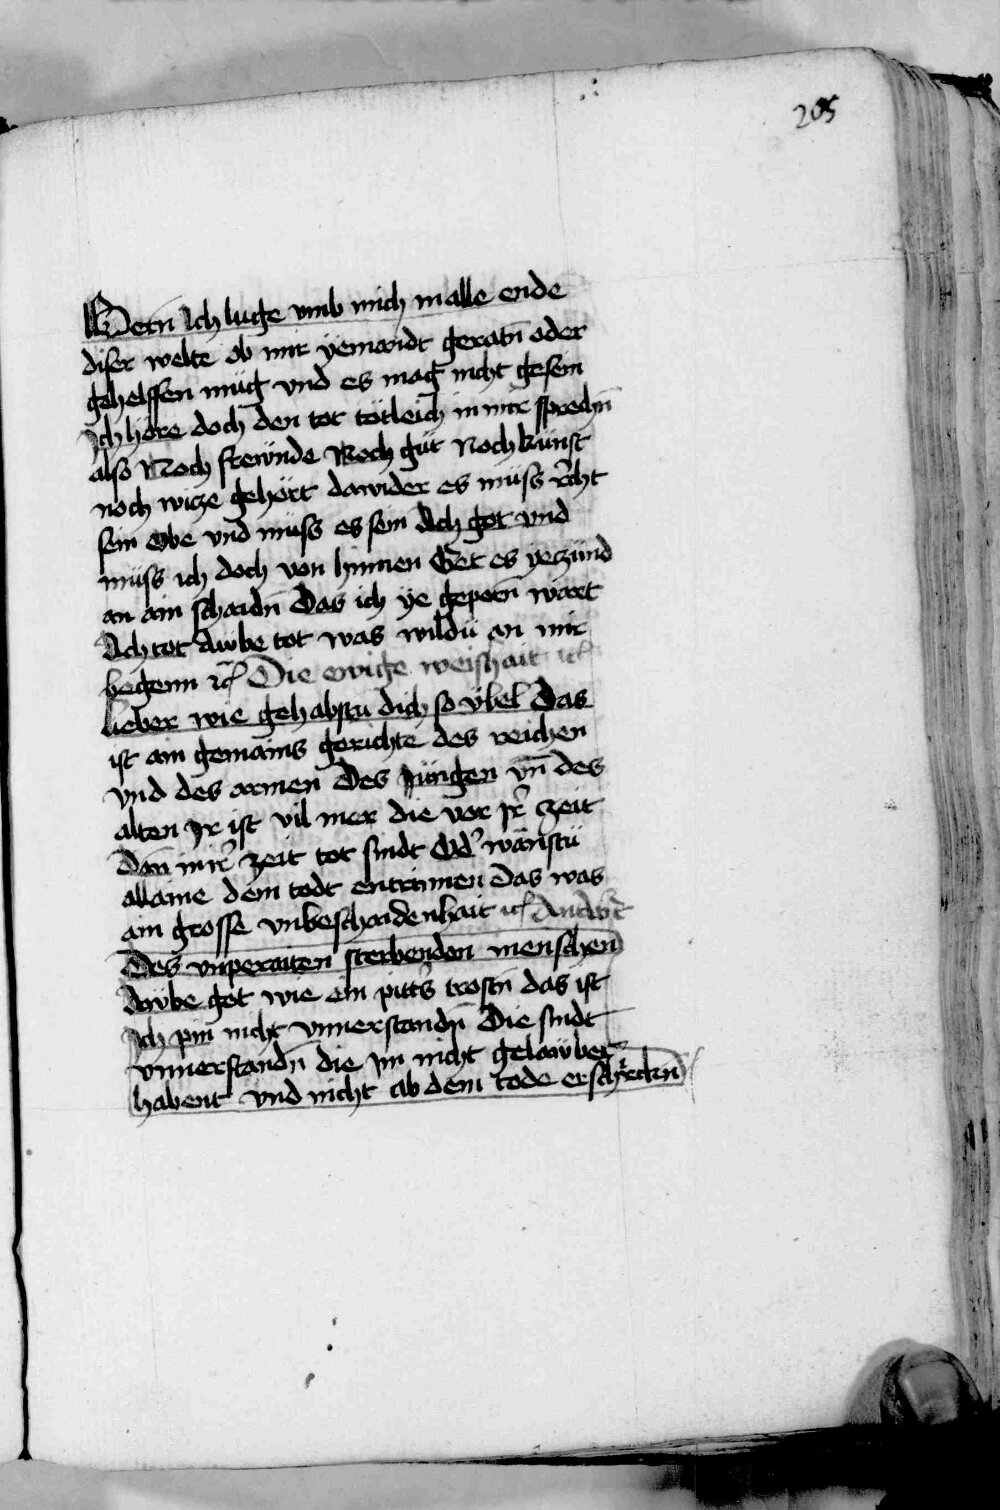 205
Wern Ich luge vmb mich in alle ende
diser welte ob mir yemandt geratn̄ oder
gehelffen müg vnd es mag nicht gesein
Ich höre doch den tot tötleich in mir sprechn̄
also Noch frewnde Noch güt Noch kunst
noch wicze gehört dawider es müss r̄cht
sein Obe vnd müss es sein Ach got vnd
müss ich doch von hinnen Get es yeczünd
an ain schaidn̄ Das ich ye geporn̄ wart
Ach tot Awbe tot was wildu an mir
begenn ꝛc̄ Die ewige weishait ꝛc̄
lieber wie gehabstu dich so vbel Das
ist ain gemains gerichte des reichen
vnd des armen Des Jüngen vn̄ des
alten Jr ist vil mer die vor Jr̄ czeit
Dan in ir̄ zeit tot sindt Od̄ wänstu
allaine dem todt entrinnen Das was
ain grosse vnbeschaidenhait ꝛc̄ Antwrt
Des vnperaiten sterbenden menschen
Awbe got wie ein pitt's trostn̄ das ist
Ich pin nicht vnuerstandn̄ Die sindt
vnuerstandn̄ die in nicht gelawber
habent vnd nicht ab dem tode erschreckn̄